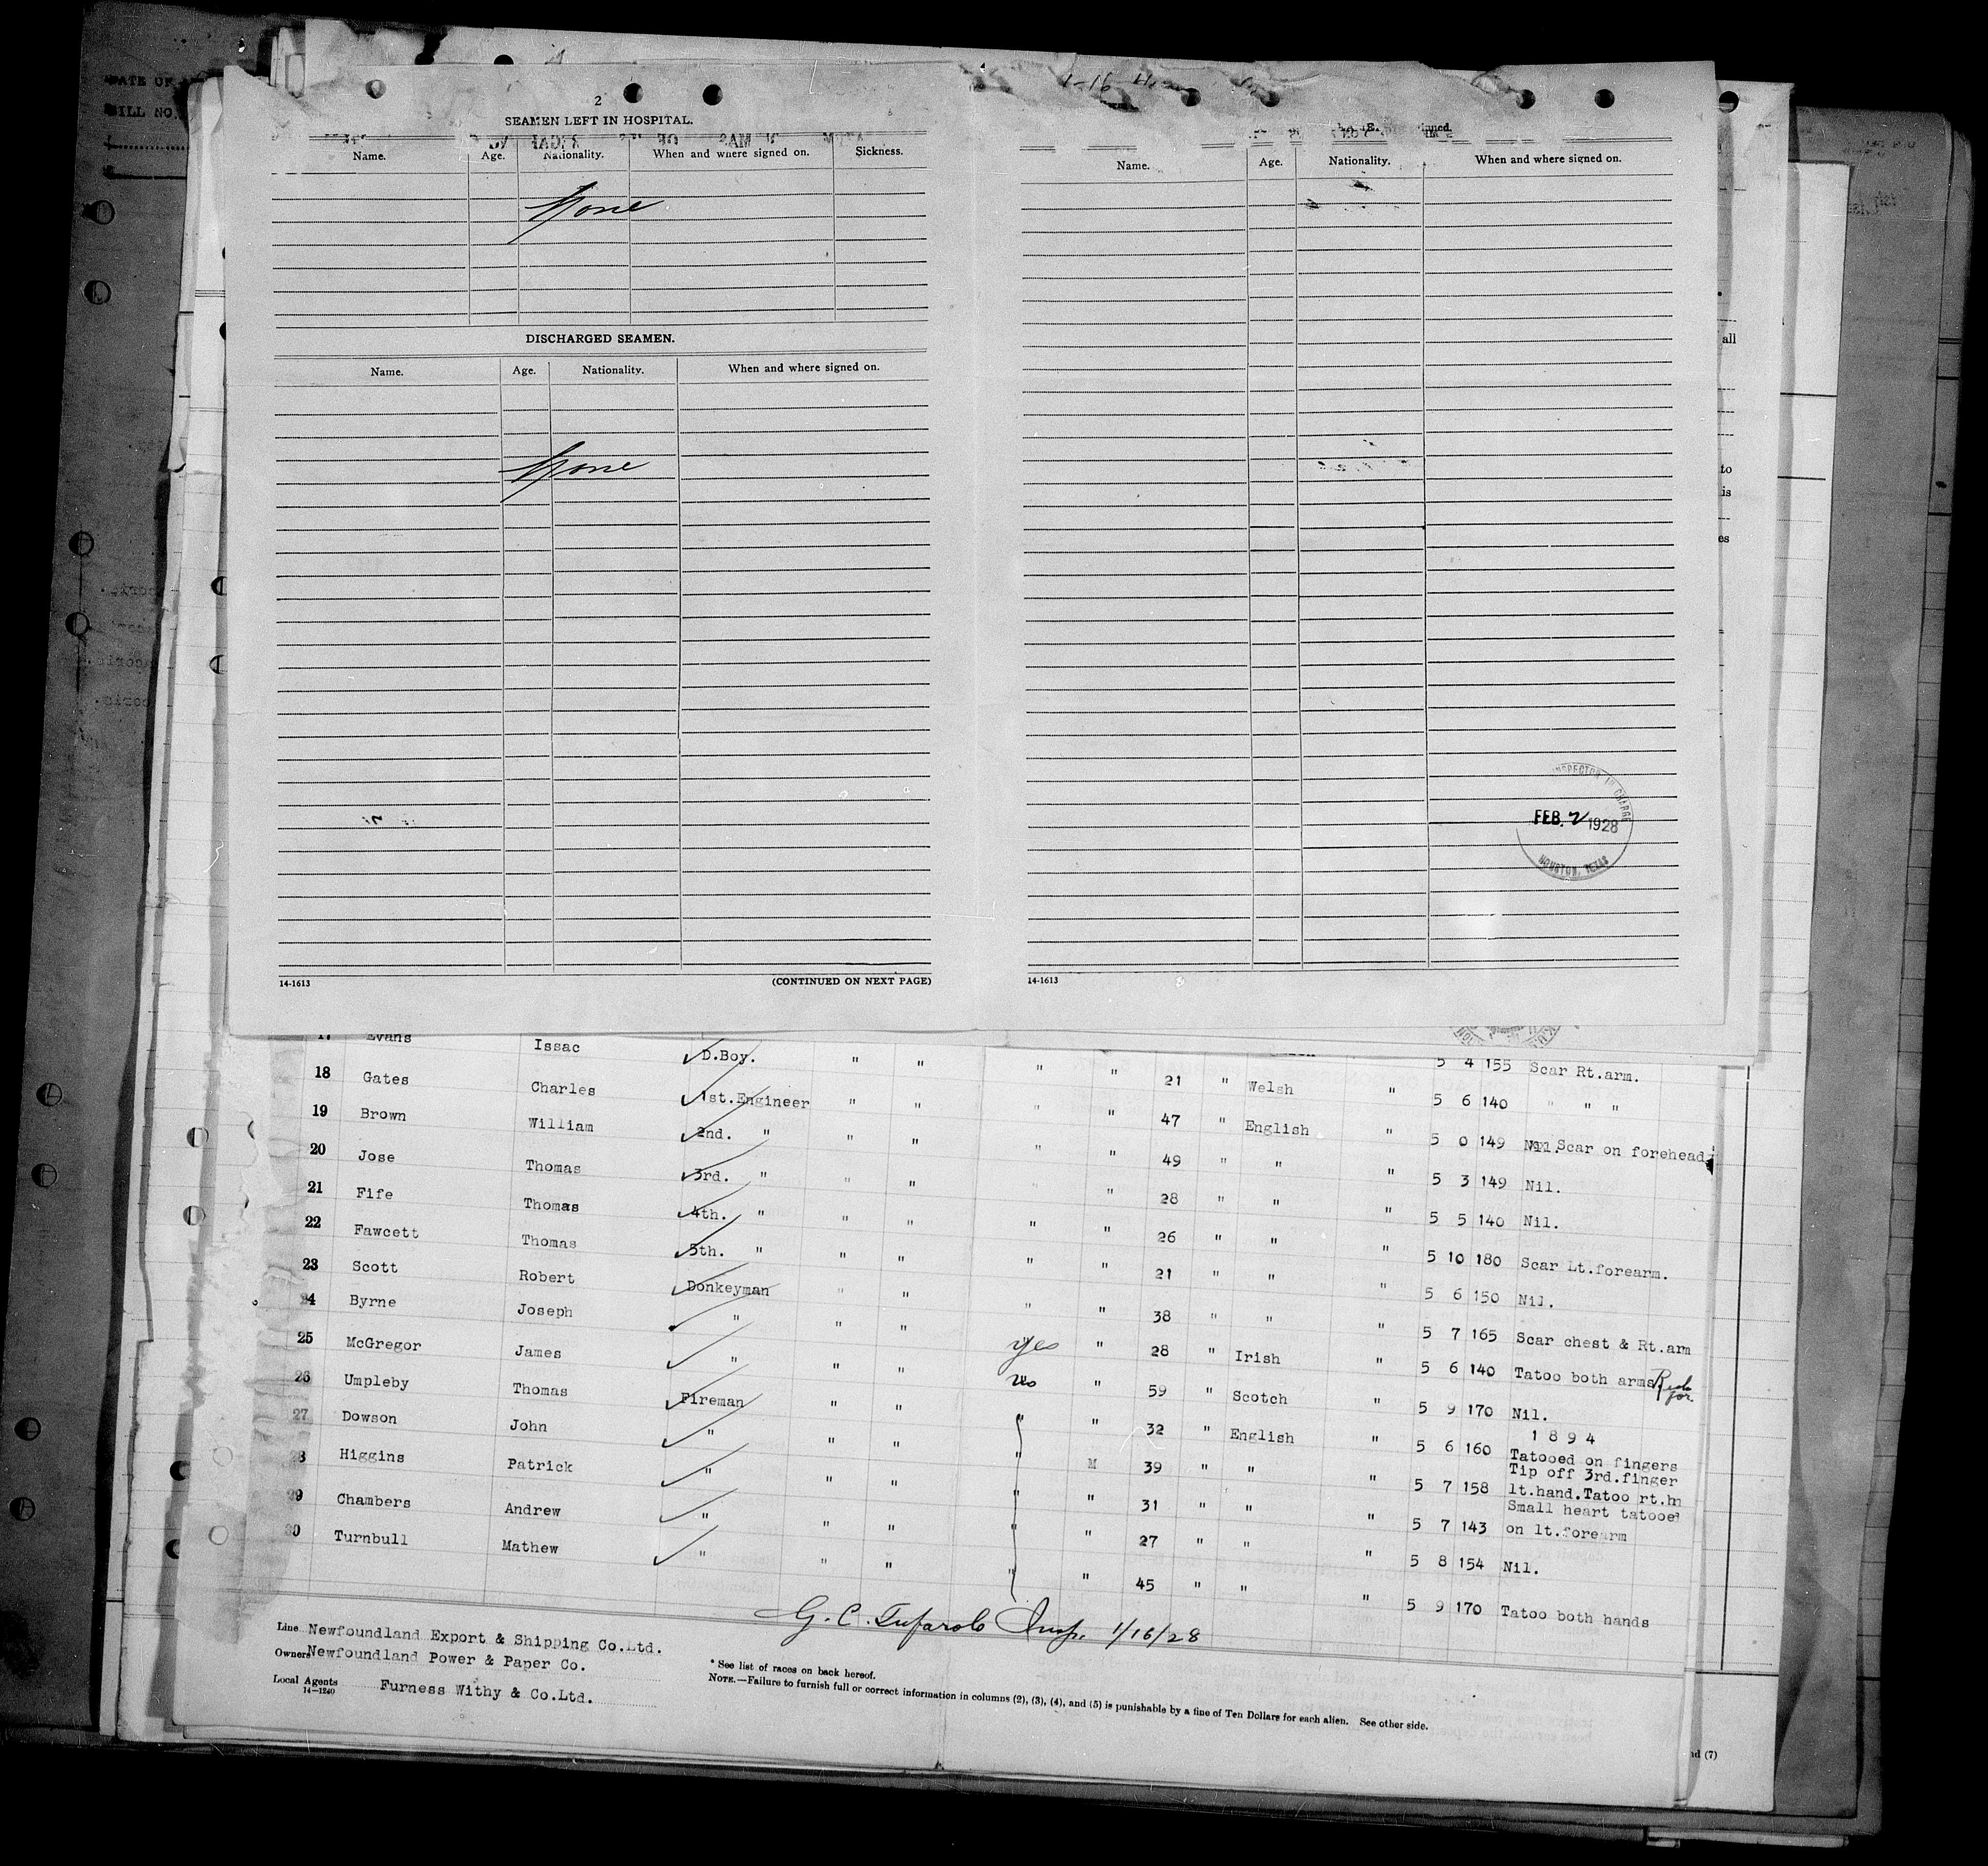 DATE OF
BILL NO.
2
SEAMEN LEFT IN HOSPITAL.
Name. Age. Nationality. When and where signed on. Sickness.
None
DISCHARGED SEAMEN.
Name. Age. Nationality. When and where signed on.
None
14-1613 (CONTINUED ON NEXT PAGE)
Name. Age. Nationality. When and where signed on.
INSPECTOR IN CHARGE
FEB. 2 1928
HOUSTON, TEXAS
14-1613
all
to
is
es
5 4 155 Scar Rt.arm.
17 Evans Issac D.Boy. " " " " 21 " Welsh " 5 6 140 " " "
18 Gates Charles 1st.Engineer " " " " 47 " English " 5 0 149 Nil. Scar on forehead
19 Brown William 2nd. " " " " " 49 " " " 5 3 149 Nil.
20 Jose Thomas 3rd. " " " " " 28 " " " 5 5 140 Nil.
21 Fife Thomas 4th. " " " " " 26 " " " 5 10 180 Scar Lt.forearm.
22 Fawcett Thomas 5th. " " " " " 21 " " " 5 6 150 Nil.
23 Scott Robert Donkeyman " " " " 38 " " " 5 7 165 Scar chest & Rt.arm
24 Byrne Joseph " " " yes " 28 " Irish " 5 6 140 Tatoo both arms
25 McGregor James " " " no " 59 " Scotch " 5 9 170 Nil.
26 Umpleby Thomas Fireman " " " " 32 " English " 5 6 160 1894 Tatooed on fingers
27 Dowson John " " " " M 39 " " " 5 7 158 Tip off 3rd.finger lt.hand.Tatoo rt.hn
28 Higgins Patrick " " " " " 31 " " " 5 7 143 Small heart tatooed on lt.forearm
29 Chambers Andrew " " " " " 27 " " " 5 8 154 Nil.
30 Turnbull Mathew " " " " " 45 " " " 5 9 170 Tatoo both hands
G. C. Insp. 1/16/28
Line Newfoundland Export & Shipping Co.Ltd.
Owners Newfoundland Power & Paper Co.
Local Agents Furness Withy & Co.Ltd.
14-1240
* See list of races on back hereof.
NOTE.—Failure to furnish full or correct information in columns (2), (3), (4), and (5) is punishable by a fine of Ten Dollars for each alien. See other side.
nd (7)